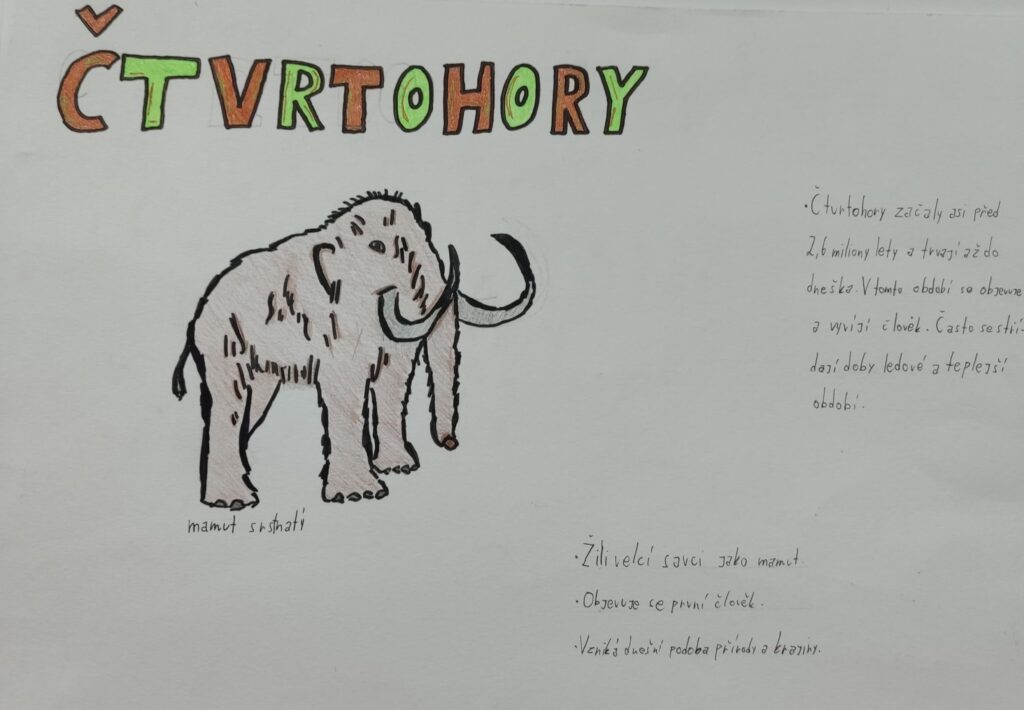 ČTVRTOHORY
• Čtvrtohory začaly asi před
2,6 miliony lety a trvají až do
dneška. V tomto období se objevuje
a vyvíjí člověk. Často se stří-
dají doby ledové a teplejší
období.
mamut srstnatý
• Žili velcí savci jako mamut.
• Objevuje se první člověk.
• Vzniká dnešní podoba přírody a krajiny.